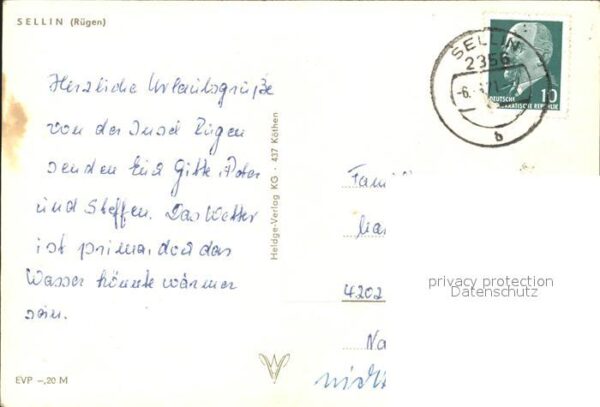 SELLIN (Rügen)
SELLIN
2356
-6.
10
DEUTSCHE
DEMOKRATISCHE REPUBLIK
b
Herzliche Urlaubsgrüße
von der Insel Rügen
senden Euch Gitte, Peter
und Steffen. Das Wetter
ist prima, doch das
Wasser könnte wärmer
sein.
Heldge-Verlag KG · 437 Köthen
Fami
4202
Na
privacy protection
Datenschutz
EVP –,20 M